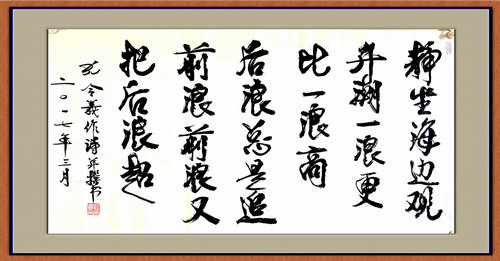 静坐海边观
弄潮一浪更
比一浪高
后浪总是追
前浪前浪又
把后浪超
孔令義作诗并撰书
二〇一七年三月